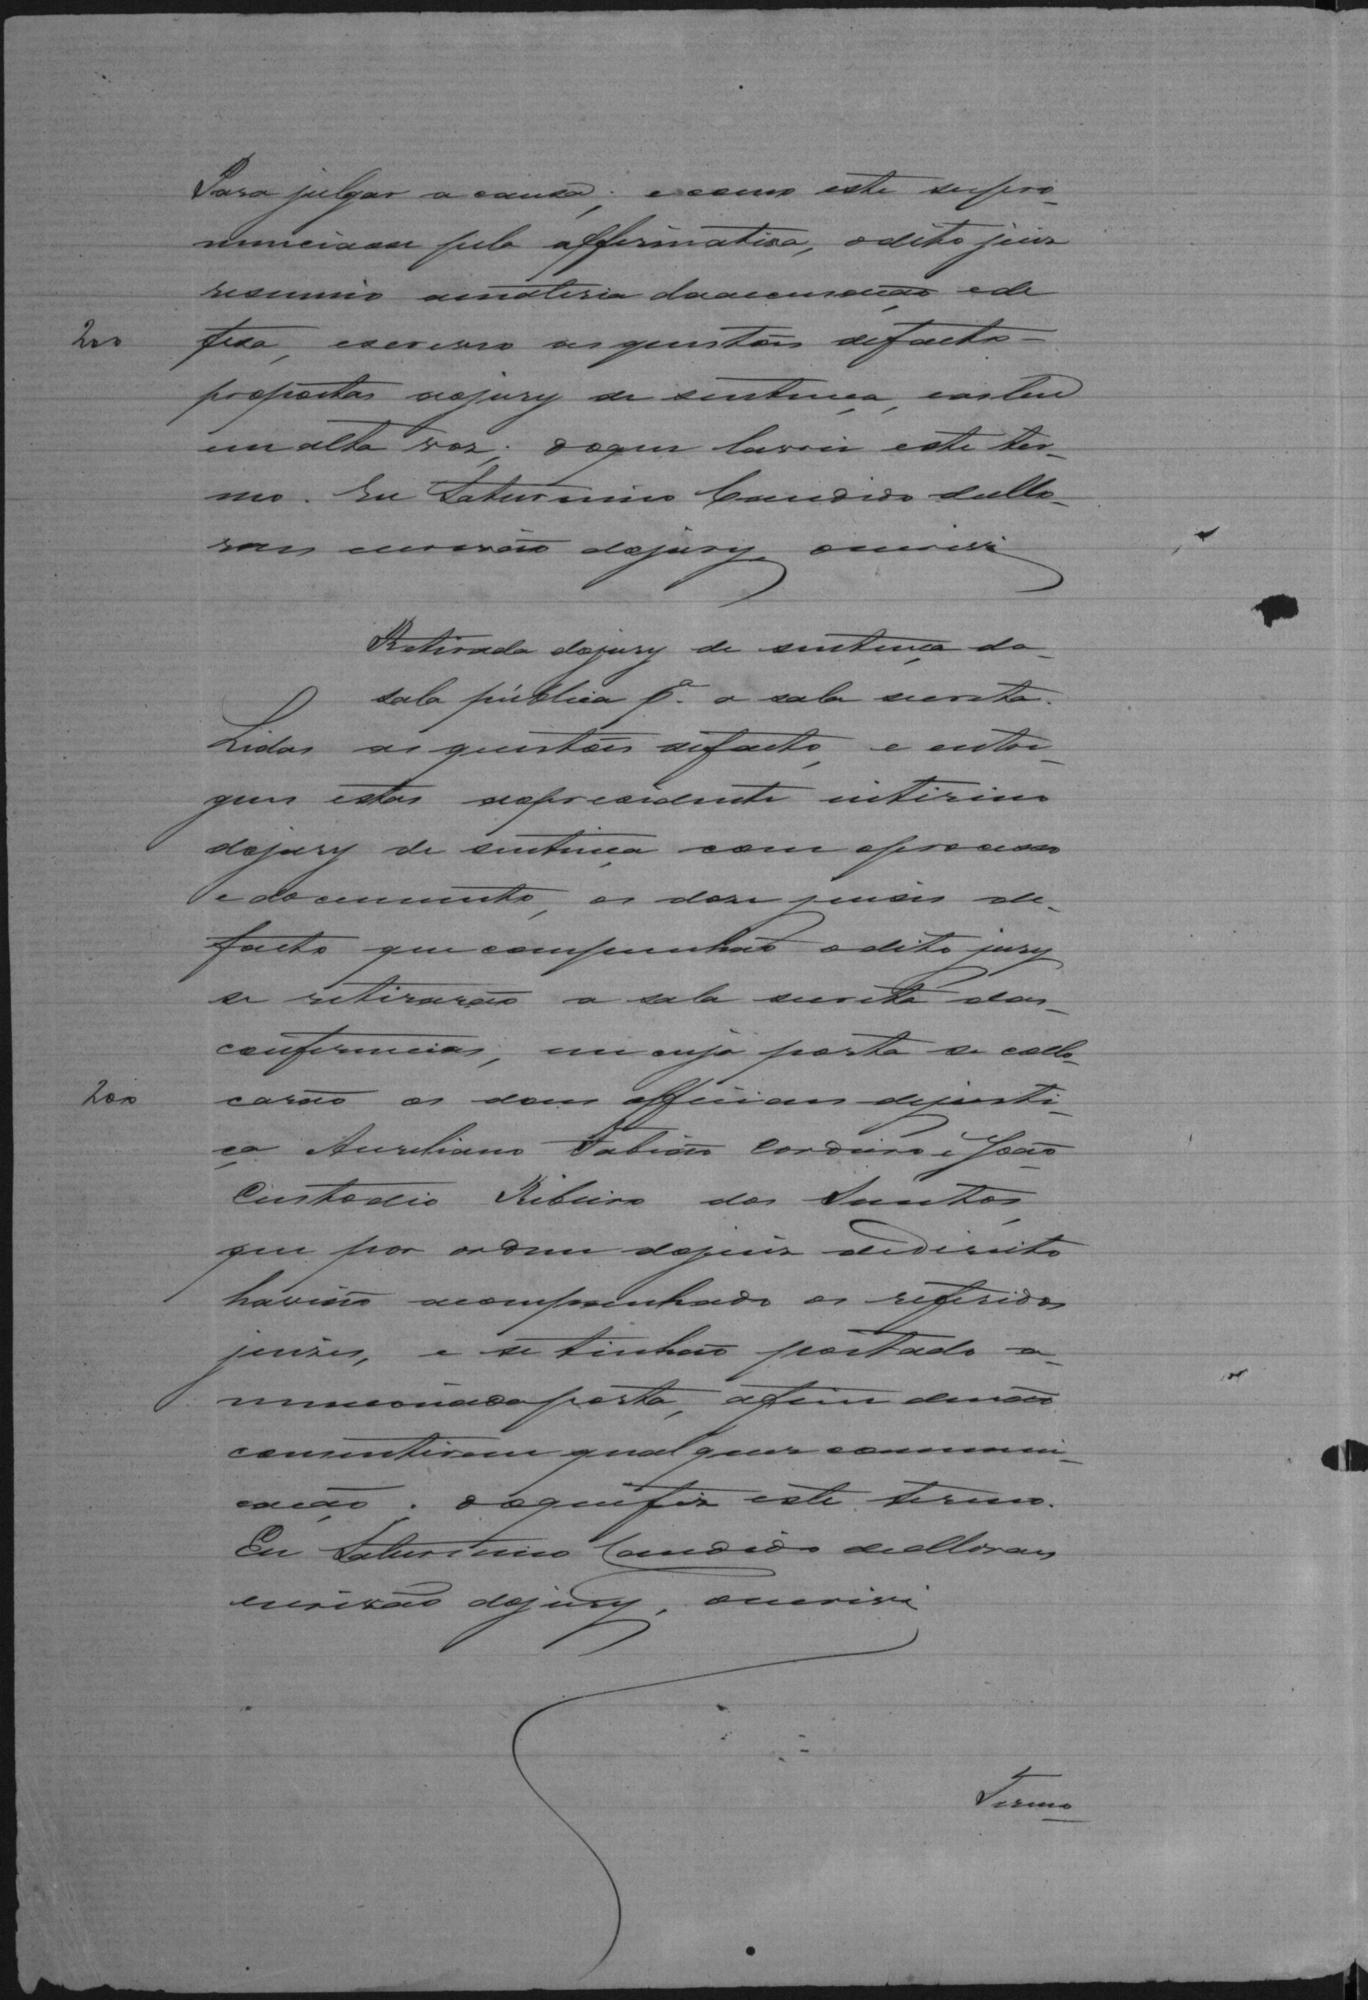 Para julgar a causa; e como este se pro-
nunciasse pela affirmativa, o dito juiz
resumio a materia da accusação e de
200 fesa, escreveo as questões de facto
propostas ao jury de sentença, e as leu
em alta voz; do que lavrei este ter-
mo. Eu Saturnino Candido de Mo-
raes escrivão do jury, o escrivi
Retirada do jury de sentença da
sala pública pª. a sala secreta.
Lidas as questões de facto, e entre-
gues estas ao presidente interino
do jury de sentença com o processo
e documento, os doze juises de
facto que compunhão o dito jury
se retirarão a sala secreta das
conferencias, em cuja porta se collo-
200 carão os dous officiaes de justi-
ça Aureliano Fabião Cordeiro e João
Custodio Ribeiro dos Santos
que por ordem do juiz de direito
havião acompanhado os referidos
juises, e se tinhão postado a
mencionada porta, a fim de não
consentirem qualquer communi-
cação. do que fiz este termo.
Eu Saturnino Candido de Moraes
escrivão do jury, o escrivi
Termo